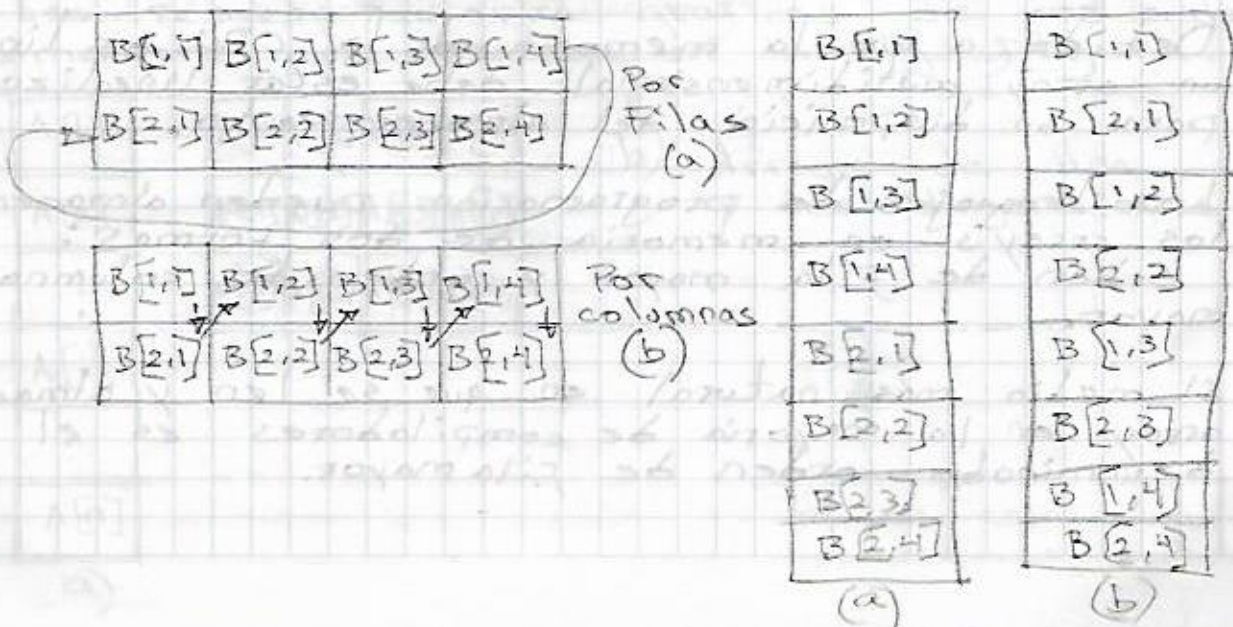 B[1,1] B[1,2] B[1,3] B[1,4]
B[2,1] B[2,2] B[2,3] B[2,4]
Por
Filas
(a)
B[1,1] B[1,2] B[1,3] B[1,4]
B[2,1] B[2,2] B[2,3] B[2,4]
Por
columnas
(b)
B[1,1]
B[1,2]
B[1,3]
B[1,4]
B[2,1]
B[2,2]
B[2,3]
B[2,4]
(a)
B[1,1]
B[2,1]
B[1,2]
B[2,2]
B[1,3]
B[2,3]
B[1,4]
B[2,4]
(b)